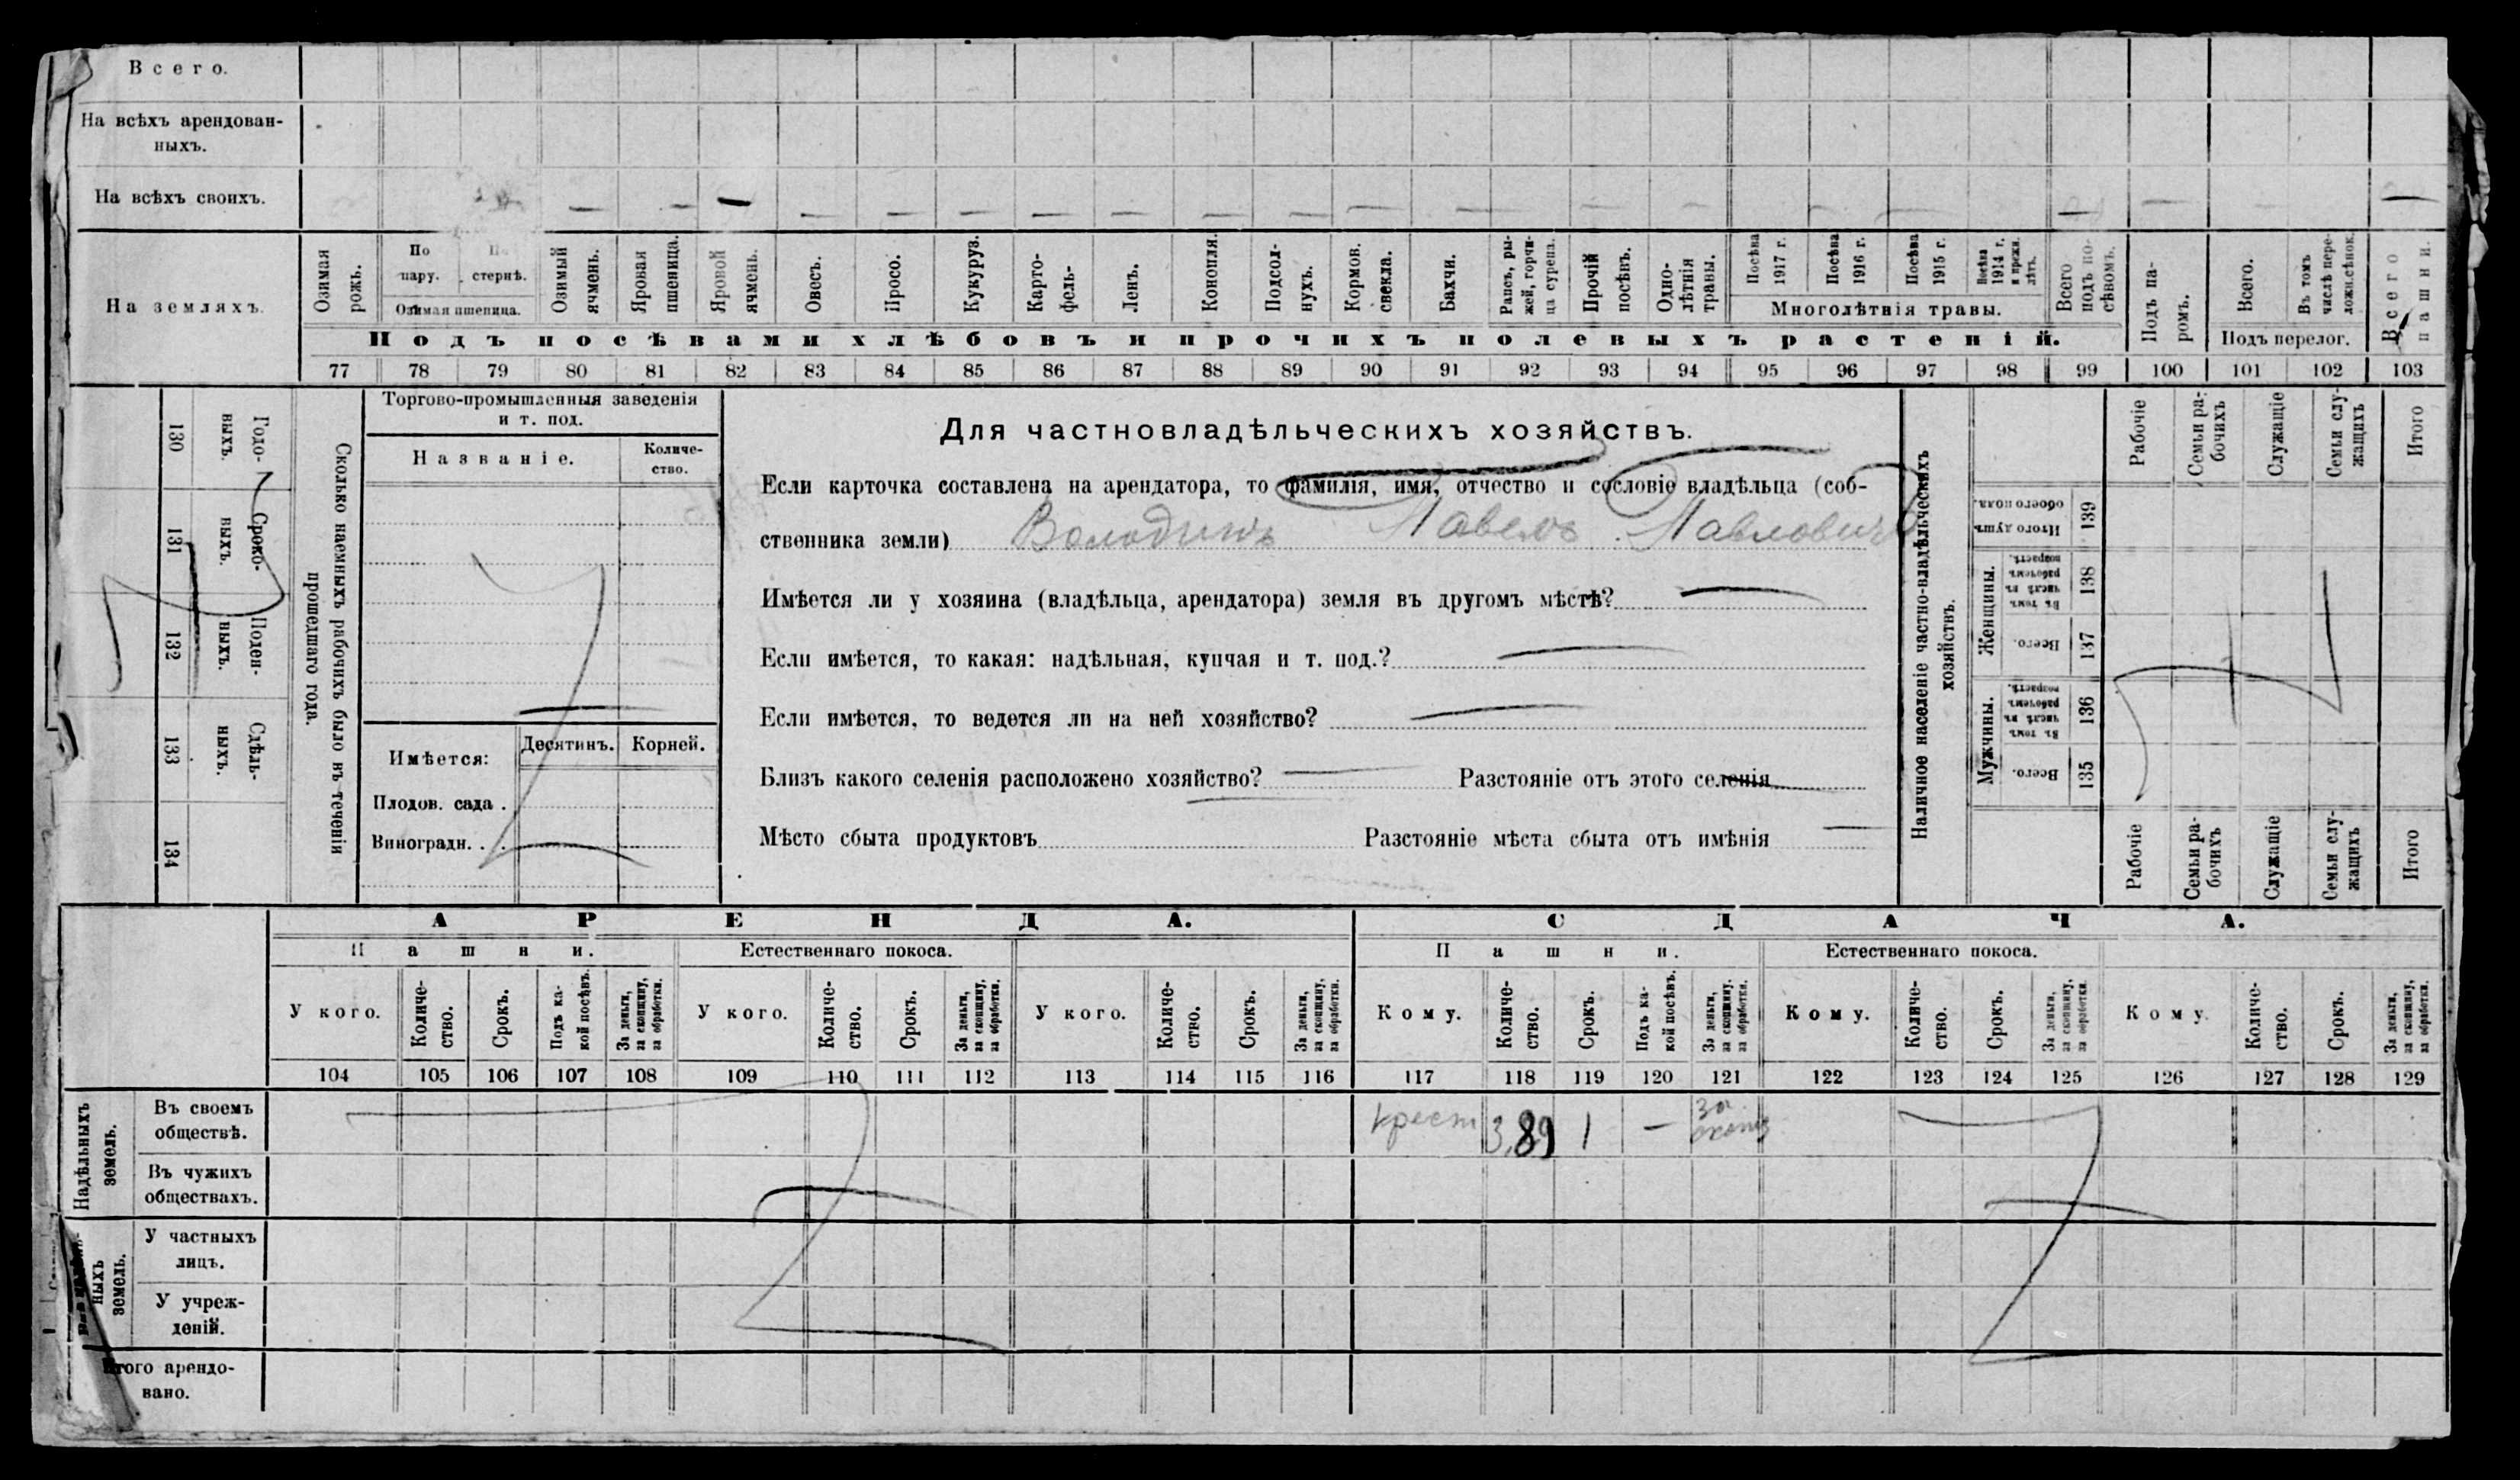 Всего.
На всѣхъ арендован-
ныхъ.
На всѣхъ своихъ.
На земляхъ.
Озимая рожь.
По пару.
По стернѣ.
Озимая пшеница.
Озимый ячмень.
Яровая пшеница.
Яровой ячмень.
Овесъ.
Просо.
Кукуруз.
Карто-
фель.
Ленъ.
Конопля.
Подсол-
нухъ.
Кормов. свекла.
Бахчи.
Рапсъ, ры-
жей, горчи-
ца сурепа.
Прочій посѣвъ.
Одно-
лѣтнія травы.
Посѣва 1917 г.
Посѣва 1916 г.
Посѣва 1915 г.
Посѣва 1914 г. и прежн. лѣтъ.
Многолѣтнія травы.
Всего подъ по-
сѣвомъ.
Подъ па-
ромъ.
Всего.
Въ томъ числѣ пере-
ложн.сѣнок.
Подъ перелог.
Всего пашни.
Подъ посѣвами хлѣбовъ и прочихъ полевыхъ растеній.
77 78 79 80 81 82 83 84 85 86 87 88 89 90 91 92 93 94 95 96 97 98 99 100 101 102 103
130 Годо-
выхъ.
131 Сроко-
выхъ.
132 Поден-
ныхъ.
133 Сдѣль-
ныхъ.
134
Сколько наемныхъ рабочихъ было въ теченіи
прошедшаго года.
Торгово-промышленныя заведенія
и т. под.
Названіе.
Количе-
ство.
Имѣется:
Десятинъ.
Корней.
Плодов. сада .
Виноградн. . .
Для частновладѣльческихъ хозяйствъ.
Если карточка составлена на арендатора, то фамилія, имя, отчество и сословіе владѣльца (соб-
ственника земли) Володинъ Павелъ Павловичъ
Имѣется ли у хозяина (владѣльца, арендатора) земля въ другомъ мѣстѣ? —
Если имѣется, то какая: надѣльная, купчая и т. под.? —
Если имѣется, то ведется ли на ней хозяйство? —
Близъ какого селенія расположено хозяйство? — Разстояніе отъ этого селенія —
Мѣсто сбыта продуктовъ Разстояніе мѣста сбыта отъ имѣнія —
Наличное населеніе частно-владѣльческихъ
хозяйствъ.
Рабочіе
Семьи ра-
бочихъ
Служащіе
Семьи слу-
жащихъ
Итого
Итого душъ обоего пола. 139
Женщины.
Въ томъ числѣ въ рабочемъ возрастѣ. 138
Всего. 137
Мужчины.
Въ томъ числѣ въ рабочемъ возрастѣ. 136
Всего. 135
Рабочіе
Семьи ра-
бочихъ
Служащіе
Семьи слу-
жащихъ
Итого
АРЕНДА.
СДАЧА.
Пашни.
Естественнаго покоса.
Пашни.
Естественнаго покоса.
У кого.
Количе-
ство.
Срокъ.
Подъ ка-
кой посѣвъ.
За деньги, за скопщину, за обработки.
У кого.
Количе-
ство.
Срокъ.
За деньги, за скопщину, за обработки.
У кого.
Количе-
ство.
Срокъ.
За деньги, за скопщину, за обработки.
Кому.
Количе-
ство.
Срокъ.
Подъ ка-
кой посѣвъ.
За деньги, за скопщину, за обработки.
Кому.
Количе-
ство.
Срокъ.
За деньги, за скопщину, за обработки.
Кому.
Количе-
ство.
Срокъ.
За деньги, за скопщину, за обработки.
104 105 106 107 108 109 110 111 112 113 114 115 116 117 118 119 120 121 122 123 124 125 126 127 128 129
Надѣльныхъ
земель.
Въ своемъ
обществѣ.
крест 3,89 1 — за
Въ чужихъ
обществахъ.
ныхъ
земель.
У частныхъ
лицъ.
У учреж-
деній.
Итого арендо-
вано.